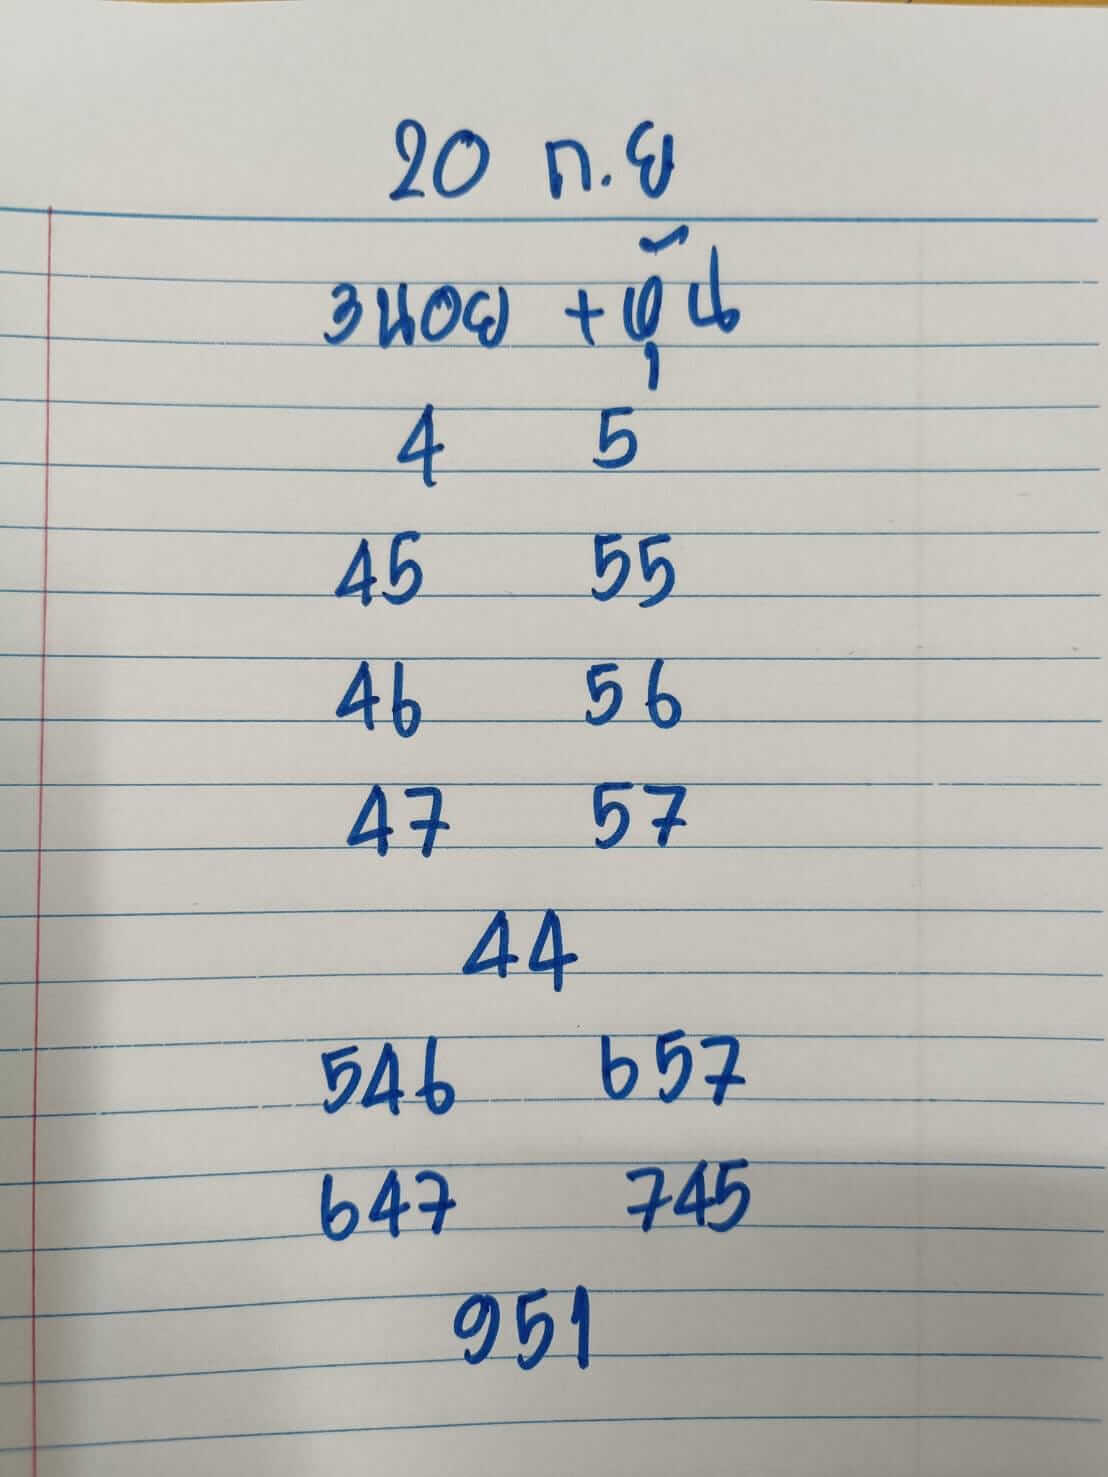 20 ก.ย
ฮานอย + หุ้น
4 5
45 55
46 56
47 57
44
546 657
647 745
951